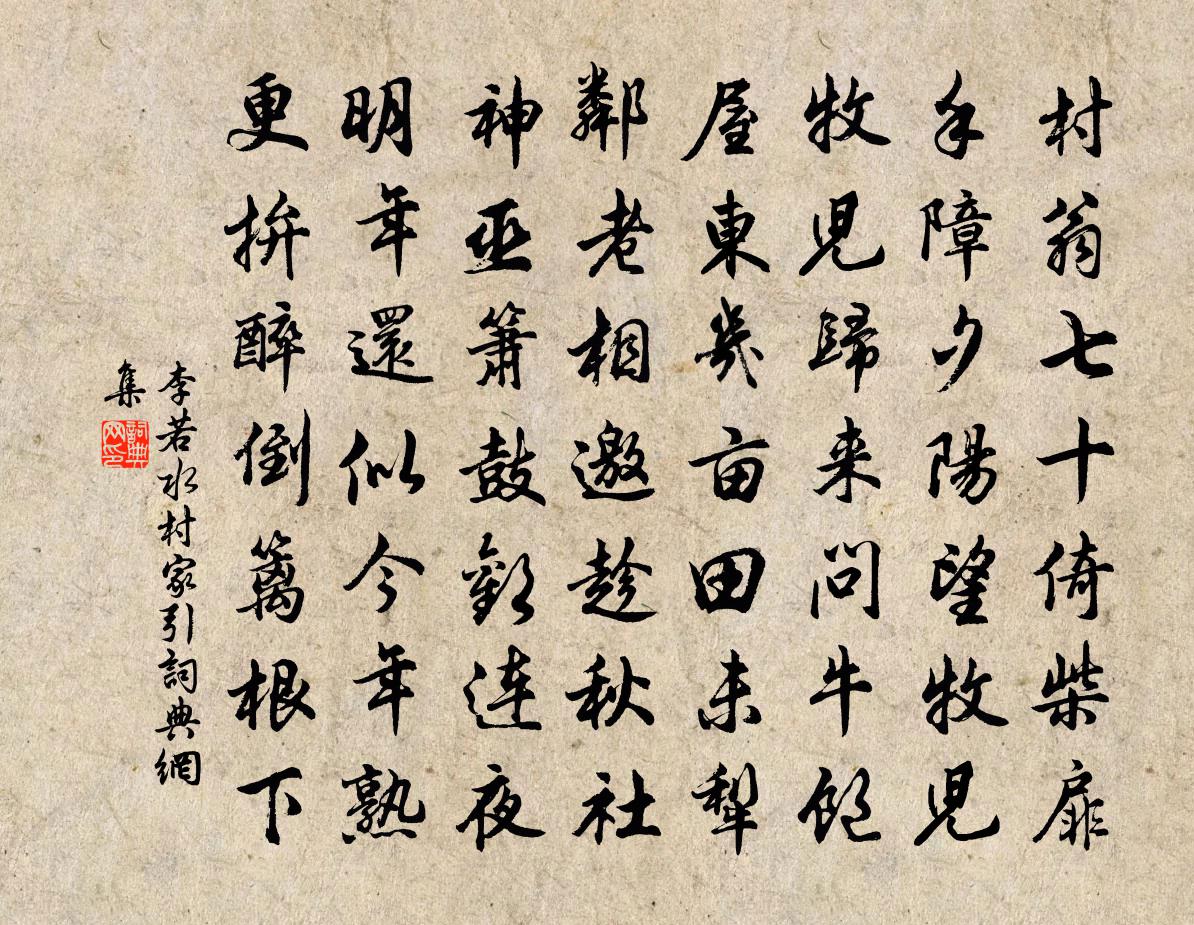 村翁七十倚柴扉
手障夕陽望牧兒
牧兒歸来問牛飽
屋東幾亩田未犁
鄰老相邀趁秋社
神巫簫鼓歡連夜
明年還似今年熟
更拚醉倒篱根下
李若水村家引詞典網
集
詞典
网印